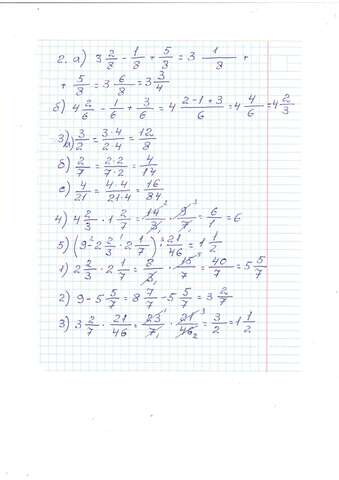 2. а) 3 2/8 - 1/8 + 5/8 = 3 1/8 +
+ 5/8 = 3 6/8 = 3 3/4
б) 4 2/6 - 1/6 + 3/6 = 4 (2-1+3)/6 = 4 4/6 = 4 2/3
3) а) 3/2 = 3·4/2·4 = 12/8
б) 2/7 = 2·2/7·2 = 4/14
с) 4/21 = 4·4/21·4 = 16/84
4) 4 2/3 · 1 2/7 = 14/3 · 9/7 = 6/1 = 6
5) (9 - 2 2/3 · 2 1/7) · 21/46 = 1 1/2
1) 2 2/3 · 2 1/7 = 8/3 · 15/7 = 40/7 = 5 5/7
2) 9 - 5 5/7 = 8 7/7 - 5 5/7 = 3 2/7
3) 3 2/7 · 21/46 = 23/7 · 21/46 = 3/2 = 1 1/2